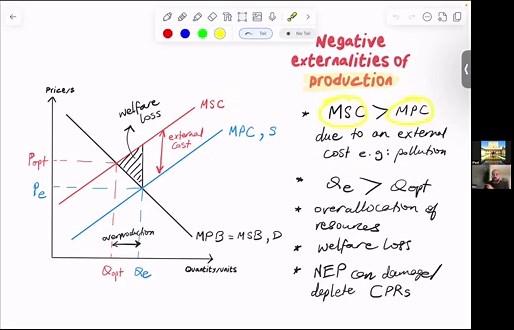 Negative
externalities of
production
Price/$
welfare
loss
MSC
external
cost
MPC, S
Popt
Pe
overproduction
MPB = MSB, D
Qopt
Qe
Quantity/units
* MSC > MPC
due to an external
cost e.g: pollution
* Qe > Qopt
* overallocation of
resources
* welfare loss
* NEP can damage/
deplete CPRs
Tail
No Tail